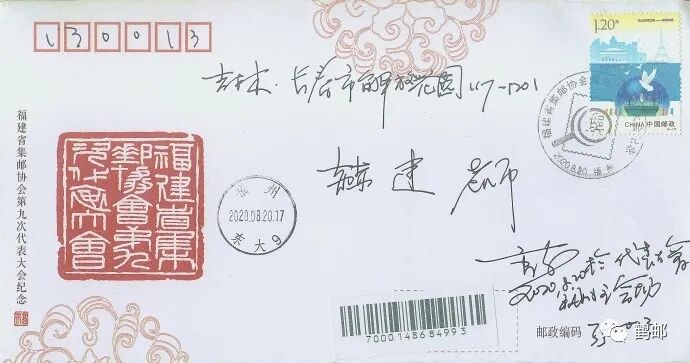 130013
1.20元
CHINA 中国邮政
吉林·长春市解放花园117-1201
福建省集邮协会
2020.8.20.福州
韩建 老师
福建省集邮协会第九次代表大会
福州
2020.08.20.17
东大9
福建省集邮协会第九次代表大会纪念
2020.8.20于代表大会
会场
7000148684993
邮政编码
鹤邮